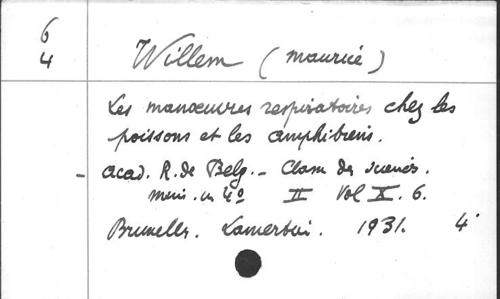 6
4
Willem (Maurice)
Les manœuvres respiratoires chez les
poissons et les amphibiens.
- Acad. R. de Belg. - Classe des sciences.
Mém. in 4º II Vol X. 6.
Bruxelles. Lamertin. 1931. 4º